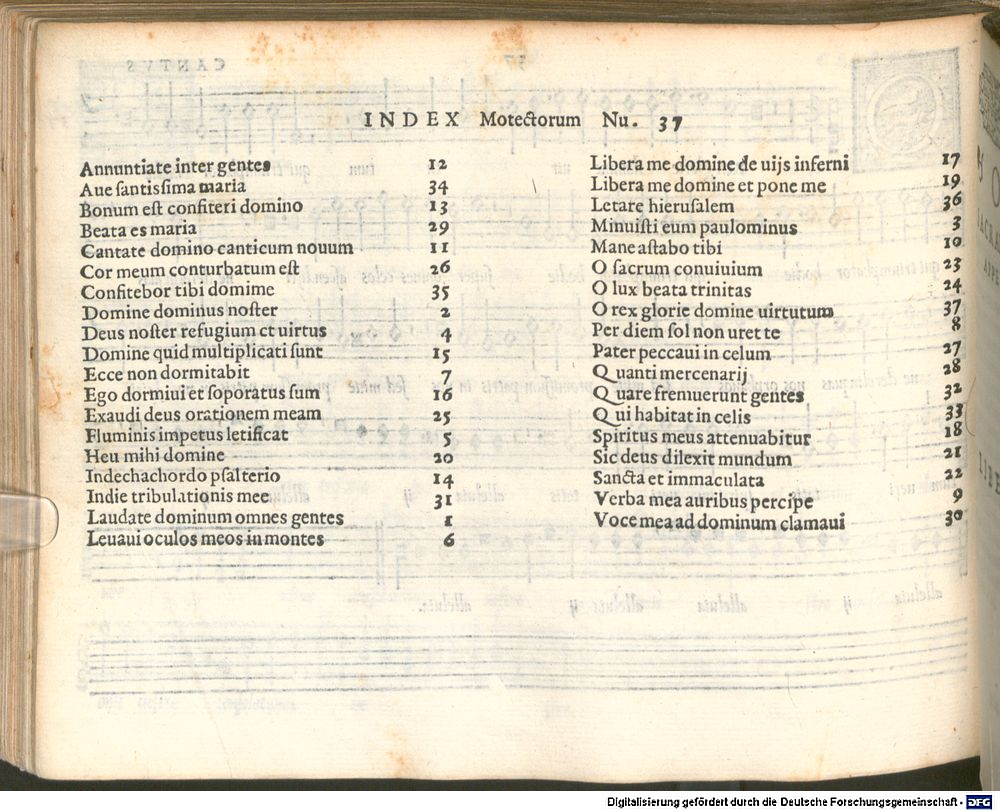 INDEX Motectorum Nu. 37
Annuntiate inter gentes 12
Aue ſantiſſima maria 34
Bonum eſt confiteri domino 13
Beata es maria 29
Cantate domino canticum nouum 11
Cor meum conturbatum eſt 26
Confitebor tibi domime 35
Domine dominus noſter 2
Deus noſter refugium et uirtus 4
Domine quid multiplicati ſunt 15
Ecce non dormitabit 7
Ego dormiui et ſoporatus ſum 16
Exaudi deus orationem meam 25
Fluminis impetus letificat 5
Heu mihi domine 20
Indechachordo pſalterio 14
Indie tribulationis mee 31
Laudate dominum omnes gentes 1
Leuaui oculos meos in montes 6
Libera me domine de uijs inferni 17
Libera me domine et pone me 19
Letare hieruſalem 36
Minuiſti eum paulominus 3
Mane aſtabo tibi 10
O ſacrum conuiuium 23
O lux beata trinitas 24
O rex glorie domine uirtutum 37
Per diem ſol non uret te 8
Pater peccaui in celum 27
Quanti mercenarij 28
Quare fremuerunt gentes 32
Qui habitat in celis 33
Spiritus meus attenuabitur 18
Sic deus dilexit mundum 21
Sancta et immaculata 22
Verba mea auribus percipe 9
Voce mea ad dominum clamaui 30
Digitalisierung gefördert durch die Deutsche Forschungsgemeinschaft - DFG